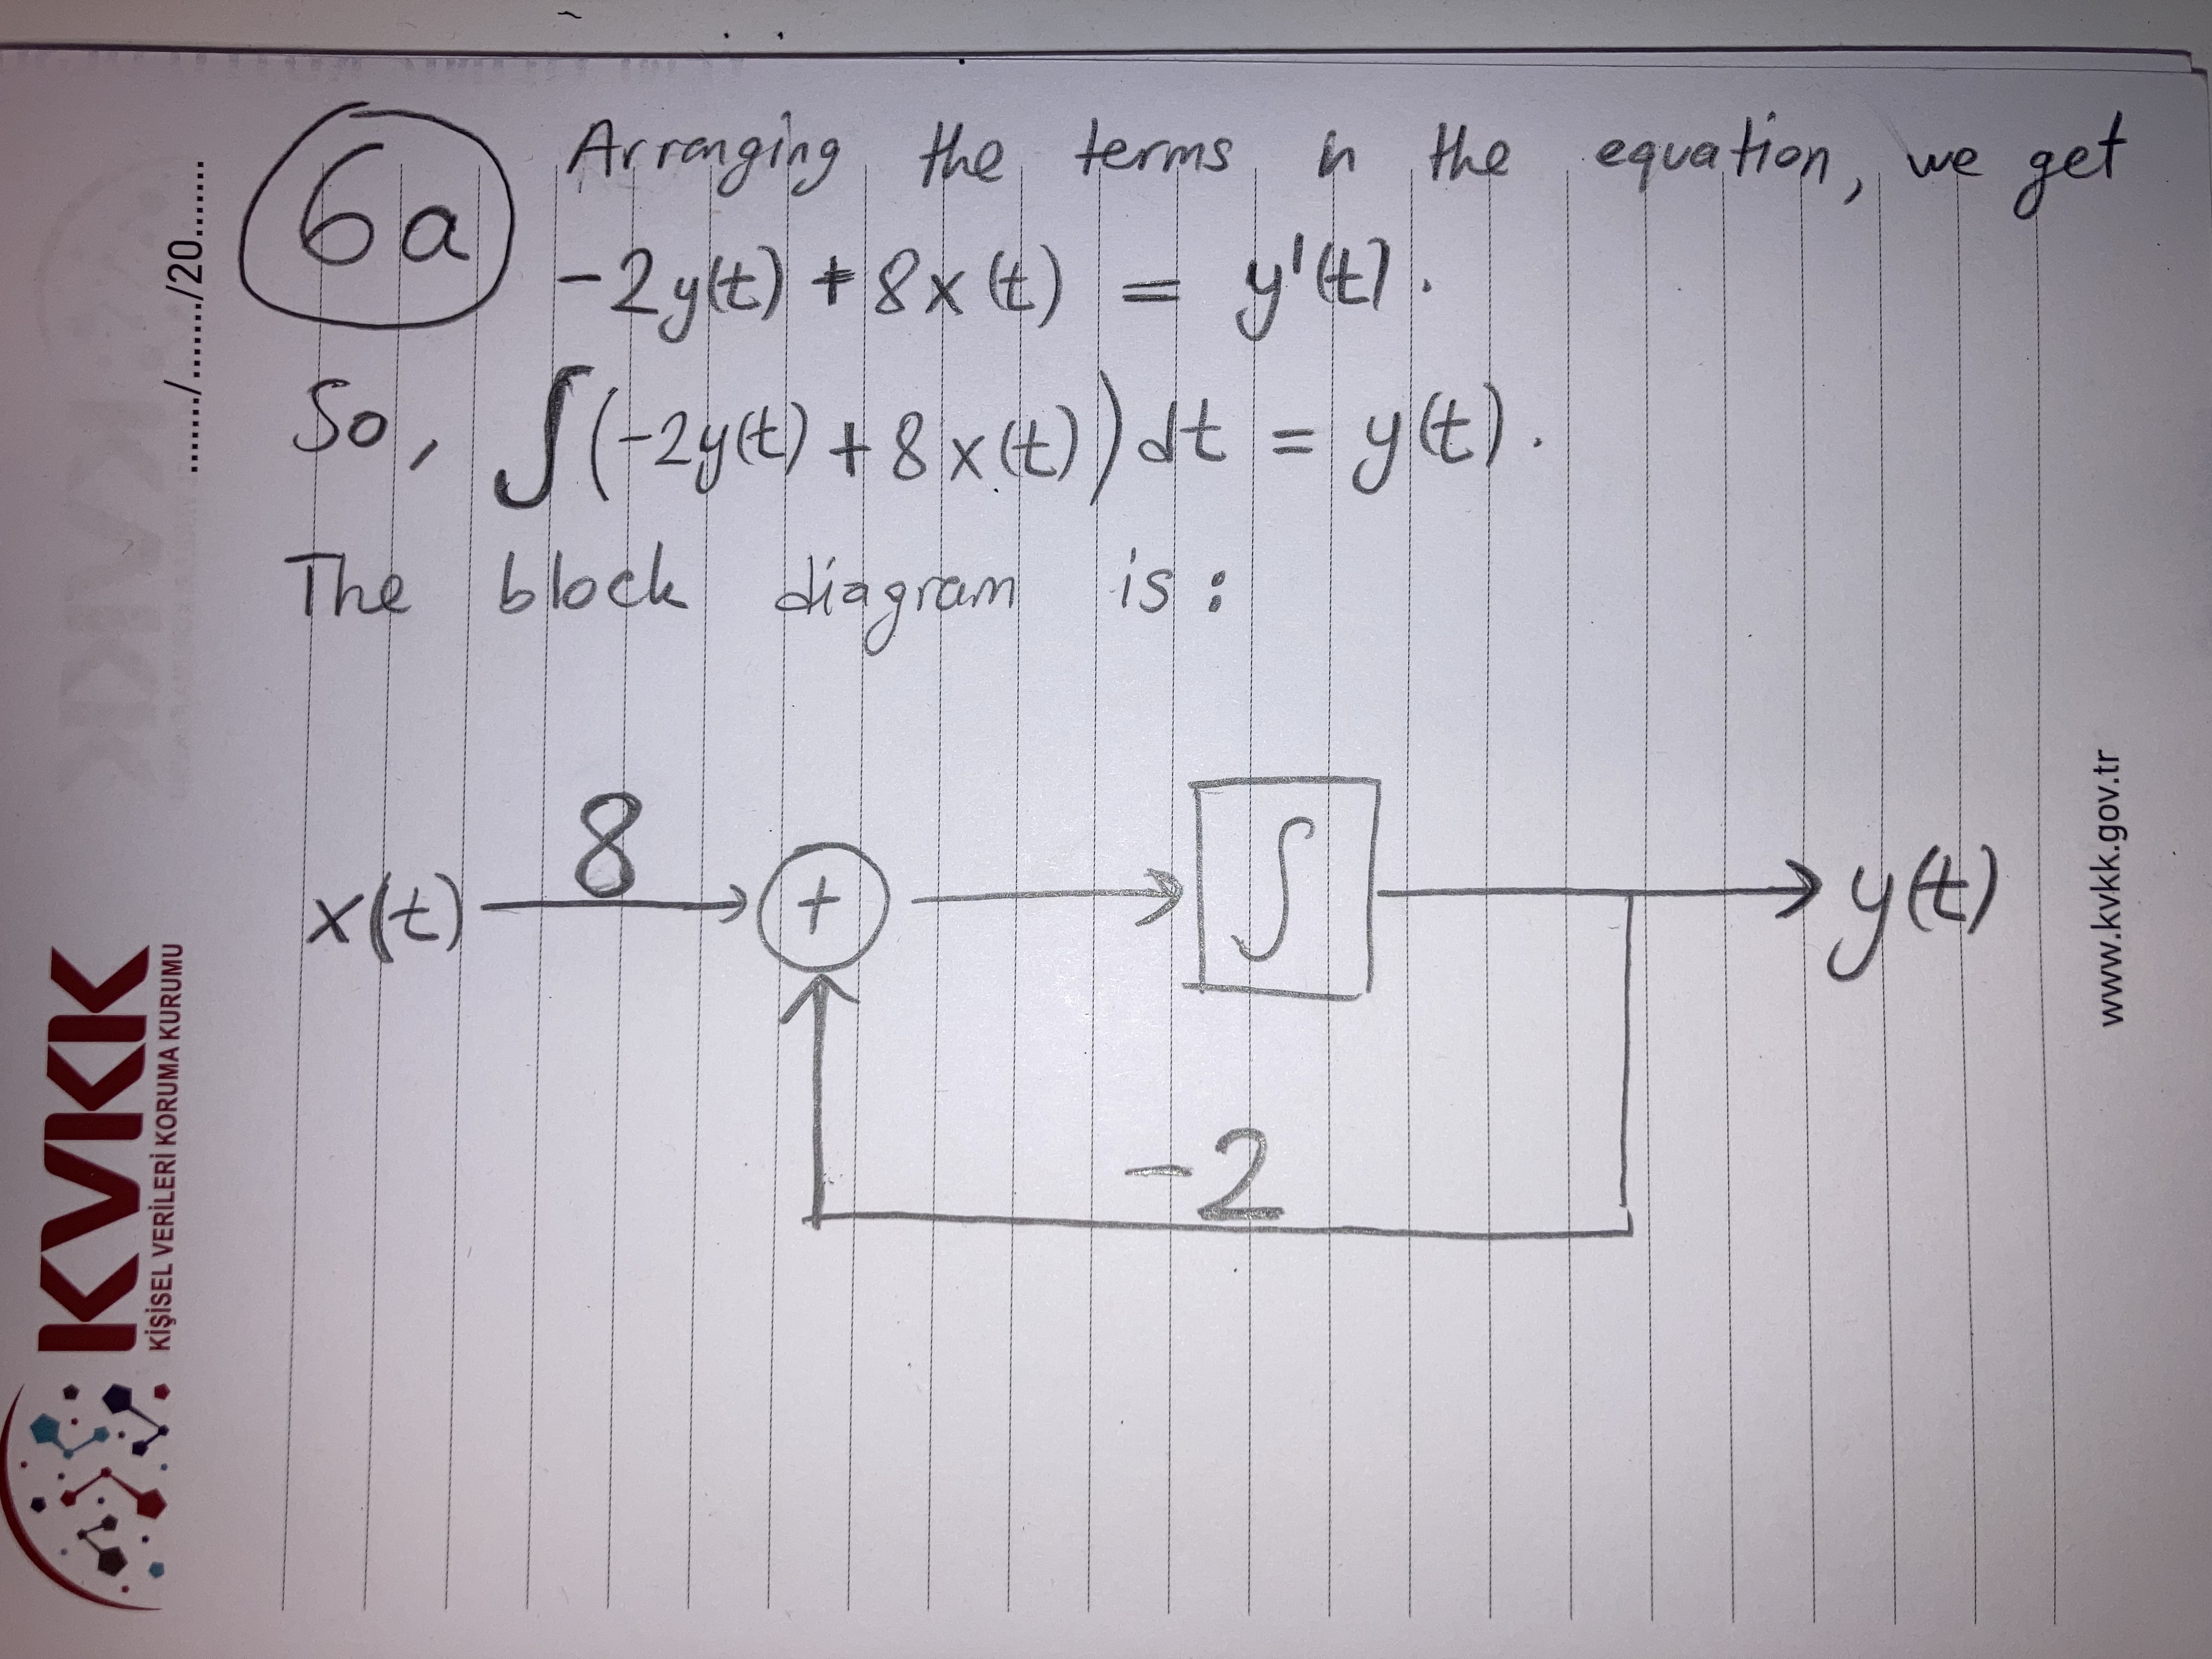 KVKK
KİŞİSEL VERİLERİ KORUMA KURUMU
......./......./20.......
6a
Arranging the terms in the equation, we get
-2y(t) + 8x(t) = y'(t).
So, ∫(-2y(t) + 8x(t))dt = y(t).
The block diagram is:
x(t) 8 + ∫ y(t)
-2
www.kvkk.gov.tr